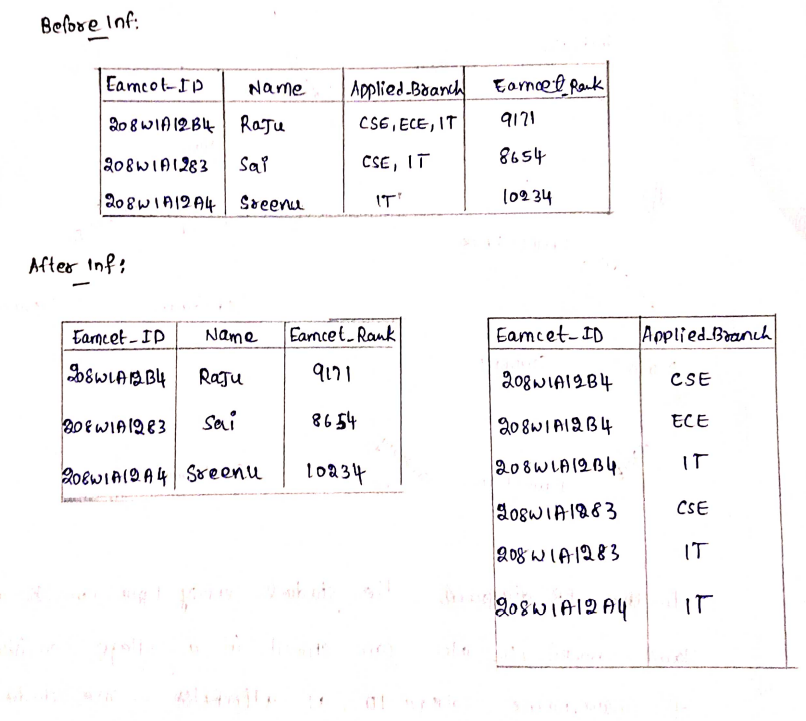 Before 1nf:
Eamcet-ID Name Applied-Branch Eamcet_Rank
208W1A12B4 Raju CSE, ECE, IT 9171
208W1A1283 Sai CSE, IT 8654
208W1A12A4 Sreenu IT 10234
After 1nf:
Eamcet-ID Name Eamcet-Rank
208W1A12B4 Raju 9171
208W1A1283 Sai 8654
208W1A12A4 Sreenu 10234
Eamcet-ID Applied-Branch
208W1A12B4 CSE
208W1A12B4 ECE
208W1A12B4 IT
208W1A1283 CSE
208W1A1283 IT
208W1A12A4 IT